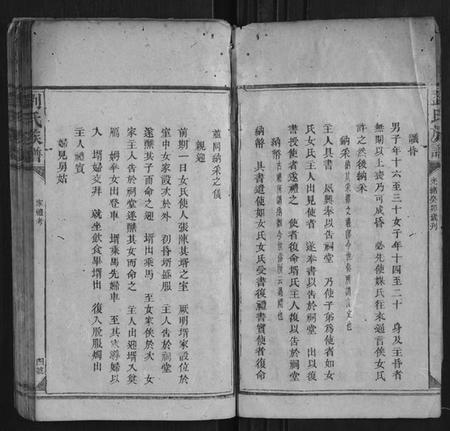 議昏
男子年十六至三十女子年十四至二十　身及主昏者
無期以上喪乃可成昏　必先使媒氏往來通言俟女氏
許之然後納采
納采
主人具書　夙興奉以告祠堂　乃使子弟為使者如女
氏女氏主人出見使者　遂奉書以告於祠堂　出以復
書授使者遂禮之　使者復命壻氏主人復以告於祠堂
納幣　具書遣使如女氏女氏受書復禮書賓使者復命
並同納采之儀
親迎
前期一日女氏使人張陳其壻之室　厥明壻家設位於
室中女家設次於外　初昏壻盛服　主人告於祠堂
遂醮其子而命之迎　壻出乘馬　至女家俟於次　女
家主人告於祠堂遂醮其女而命之　主人出迎壻入奠
鴈　姆奉女出登車　壻乘馬先婦車　至其家導婦以
入　壻婦交拜　就坐飲食畢壻出　復入脫服燭出
主人禮賓
婦見舅姑
劉氏族譜
家禮考